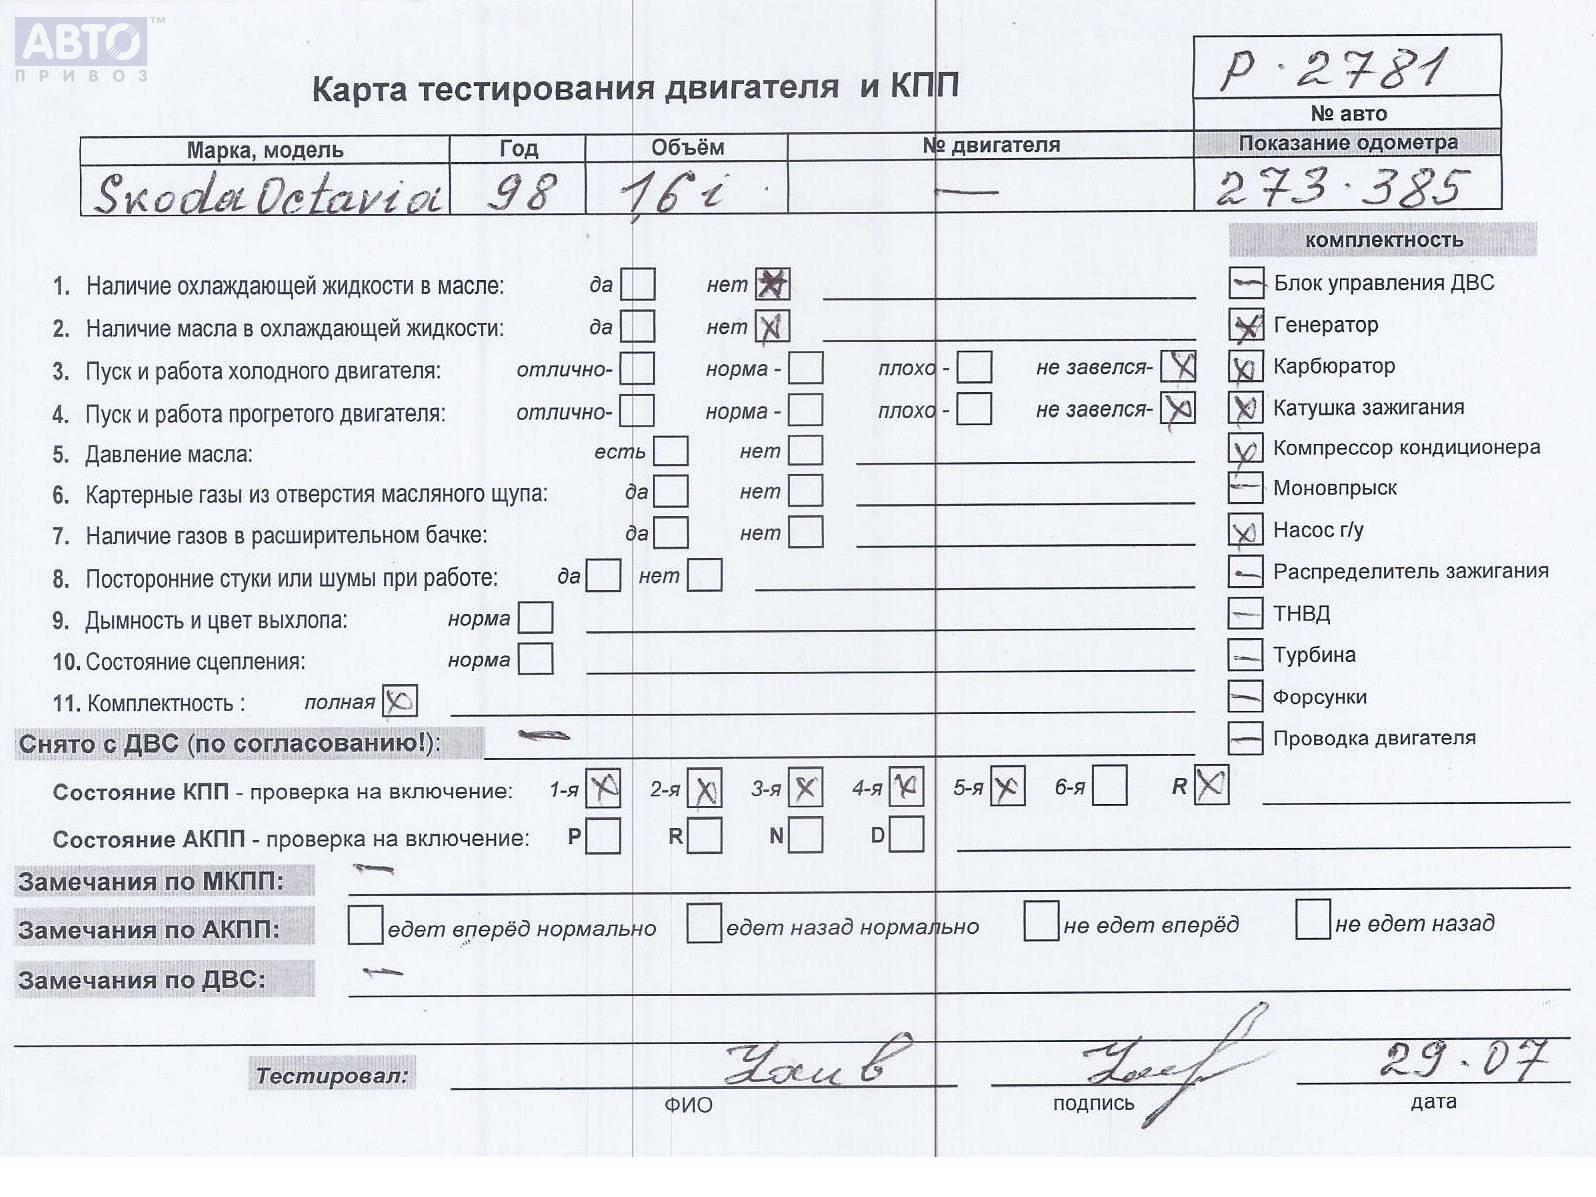 АВТО™
ПРИВОЗ
Р·2781
Карта тестирования двигателя и КПП
№ авто
Марка, модель Год Объём № двигателя Показание одометра
Skoda Octavia 98 1,6 i — 273·385
комплектность
1. Наличие охлаждающей жидкости в масле: да нет Блок управления ДВС
2. Наличие масла в охлаждающей жидкости: да нет Генератор
3. Пуск и работа холодного двигателя: отлично- норма - плохо - не завелся- Карбюратор
4. Пуск и работа прогретого двигателя: отлично- норма - плохо - не завелся- Катушка зажигания
5. Давление масла: есть нет Компрессор кондиционера
6. Картерные газы из отверстия масляного щупа: да нет Моновпрыск
7. Наличие газов в расширительном бачке: да нет Насос г/у
8. Посторонние стуки или шумы при работе: да нет Распределитель зажигания
9. Дымность и цвет выхлопа: норма ТНВД
10. Состояние сцепления: норма Турбина
11. Комплектность : полная Форсунки
Снято с ДВС (по согласованию!): — Проводка двигателя
Состояние КПП - проверка на включение: 1-я 2-я 3-я 4-я 5-я 6-я R
Состояние АКПП - проверка на включение: P R N D
Замечания по МКПП: —
Замечания по АКПП: едет вперёд нормально едет назад нормально не едет вперёд не едет назад
Замечания по ДВС: —
Тестировал: 29.07
ФИО подпись дата